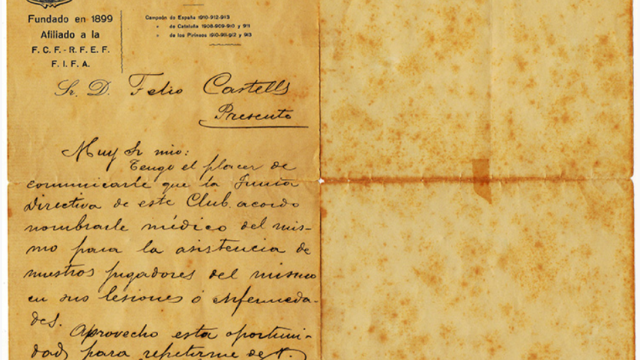 Fundado en 1899
Afiliado a la
F.C.F.-R.F.E.F.
F.I.F.A.
Campeón de España 1910-912-913
» de Cataluña 1905-909-910 y 911
» de los Pirineos 1910-911-912 y 913
Sr. D. Felio Castells
Presente
Muy Sr mio:
Tengo el placer de
comunicarle que la Junta
Directiva de este Club acordo
nombrarle médico del mis-
mo para la asistencia de
nuestros jugadores del mismo
en sus lesiones ó enfermeda-
des.
Aprovecho esta oportuni-
dad para repetirme de V.